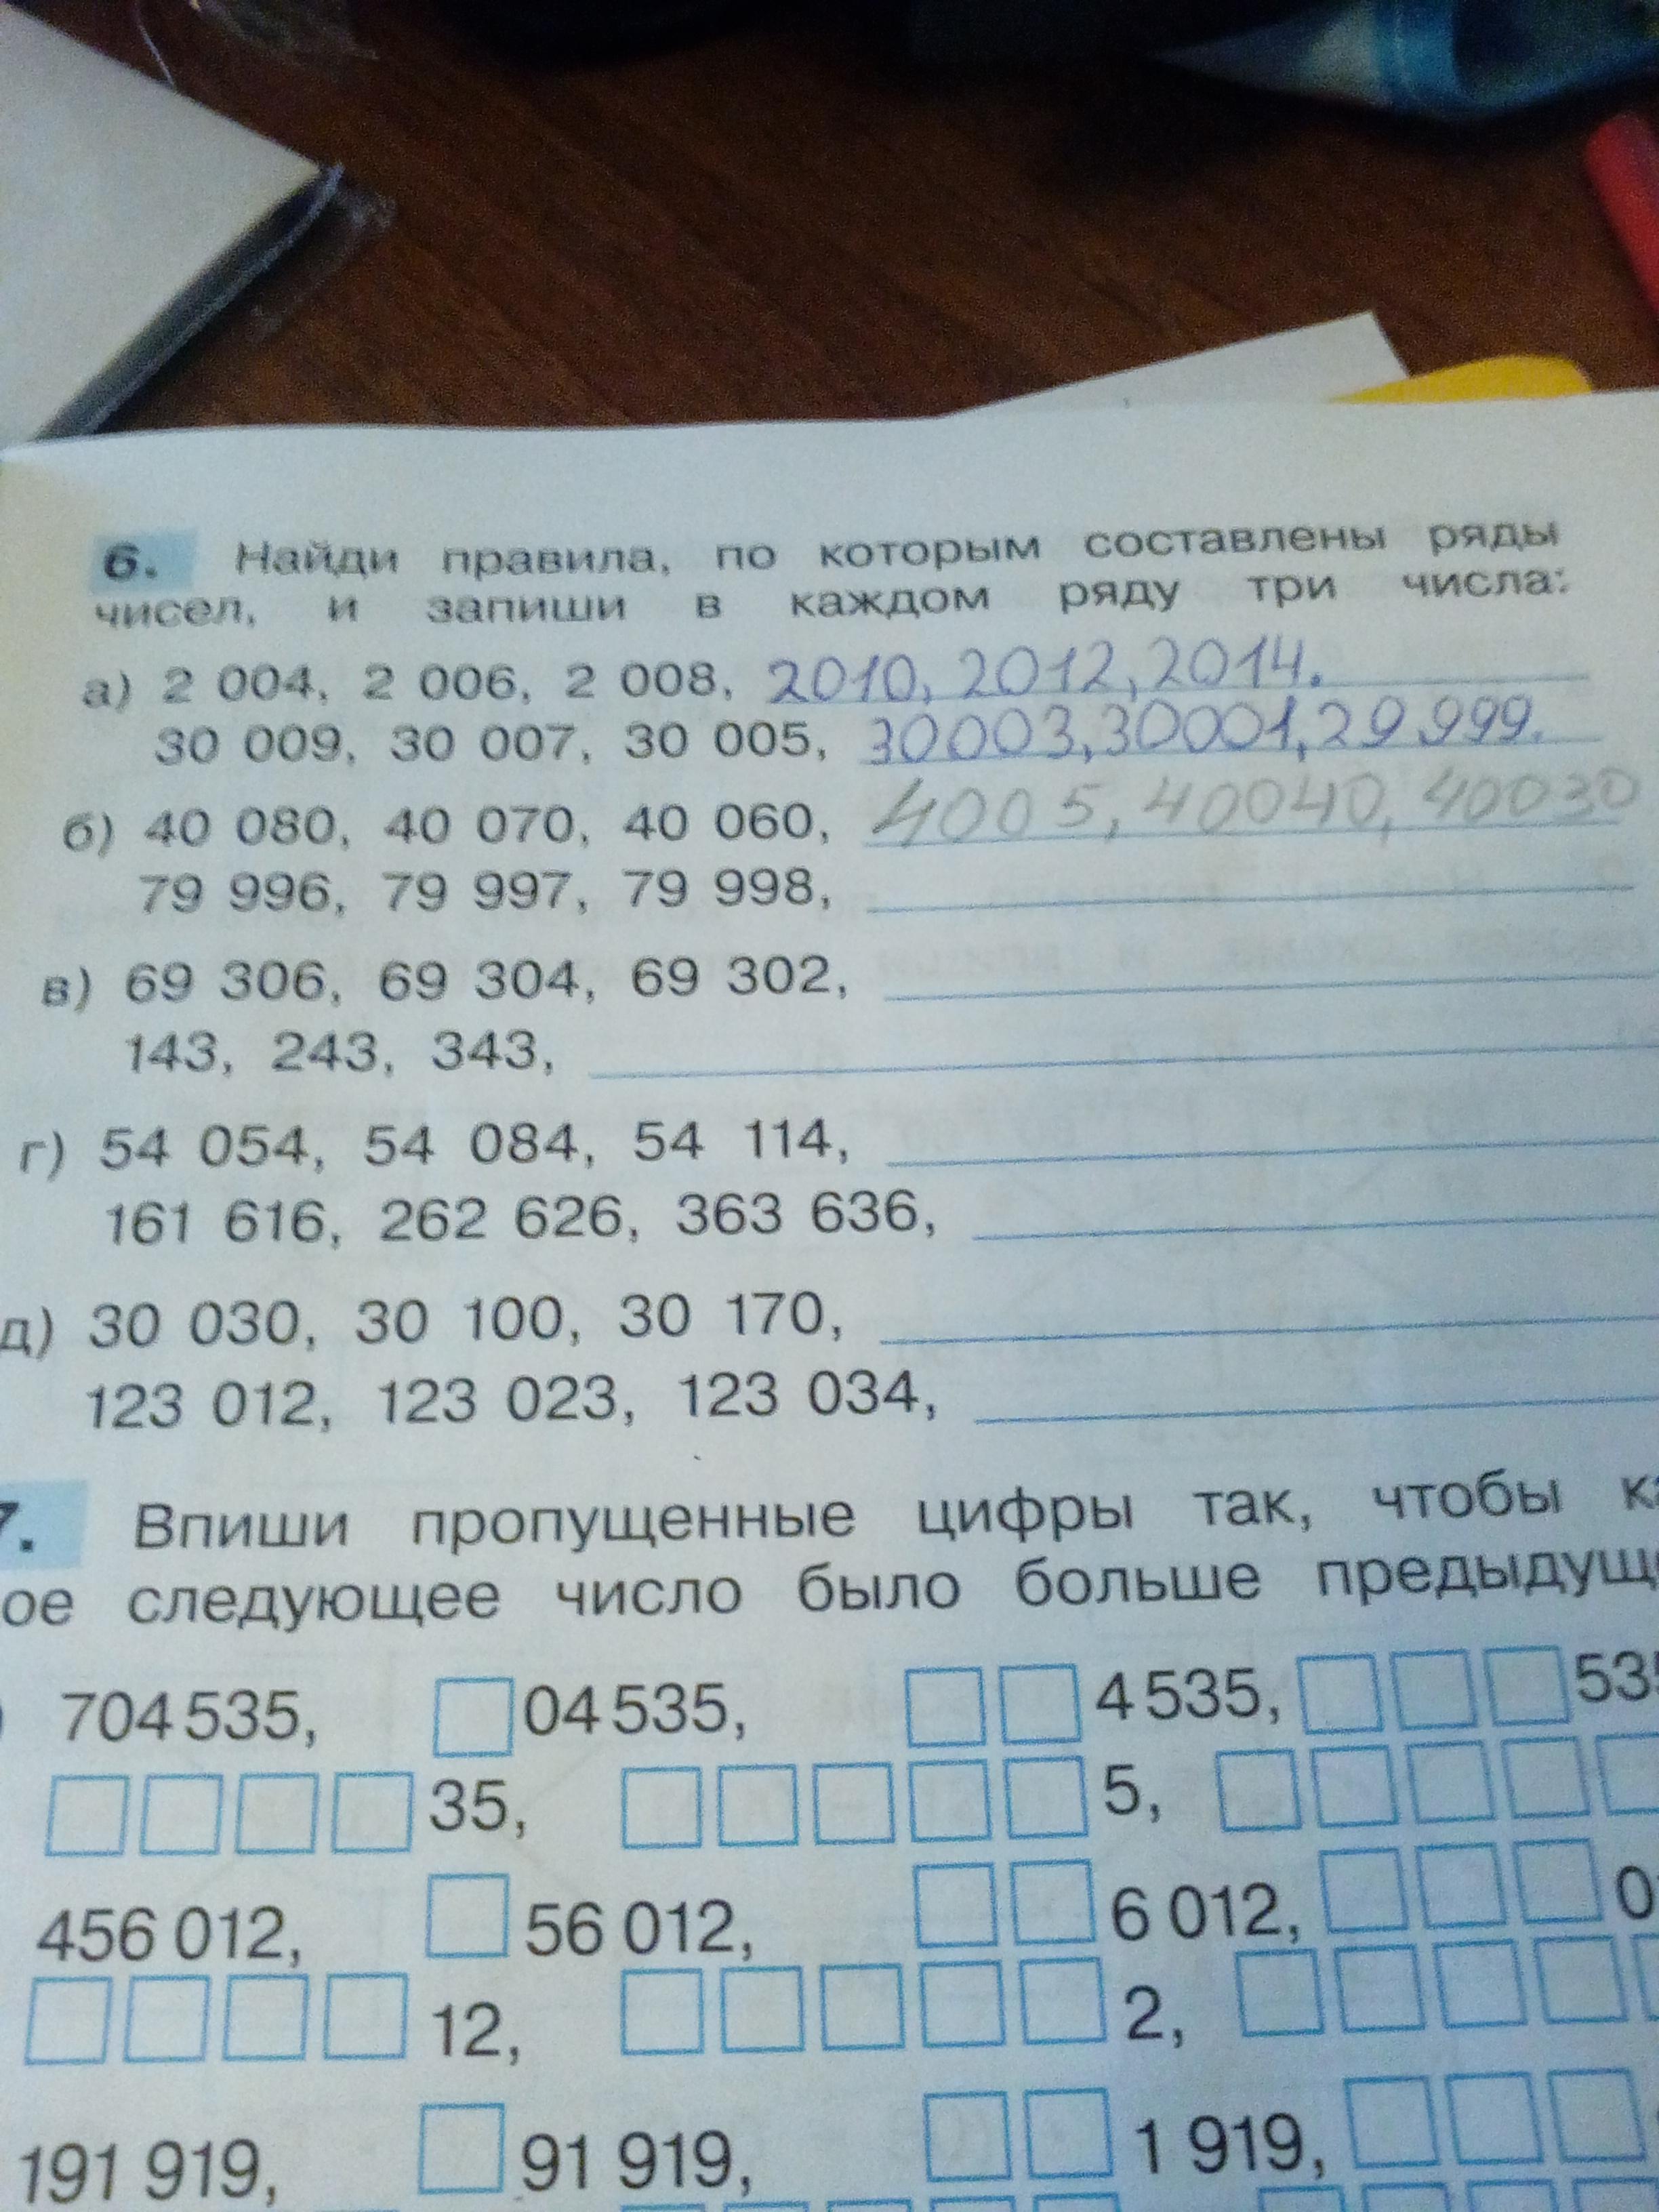 6. Найди правила, по которым составлены ряды
чисел, и запиши в каждом ряду три числа:
а) 2 004, 2 006, 2 008, 2010, 2012, 2014.
30 009, 30 007, 30 005, 30003, 30001, 29 999.
б) 40 080, 40 070, 40 060, 4005, 40040, 40030
79 996, 79 997, 79 998,
в) 69 306, 69 304, 69 302,
143, 243, 343,
г) 54 054, 54 084, 54 114,
161 616, 262 626, 363 636,
д) 30 030, 30 100, 30 170,
123 012, 123 023, 123 034,
7. Впиши пропущенные цифры так, чтобы
ое следующее число было больше предыдущ
704 535, 04 535, 4 535, 535
35, 5,
456 012, 56 012, 6 012, 0
12, 2,
191 919, 91 919, 1 919,